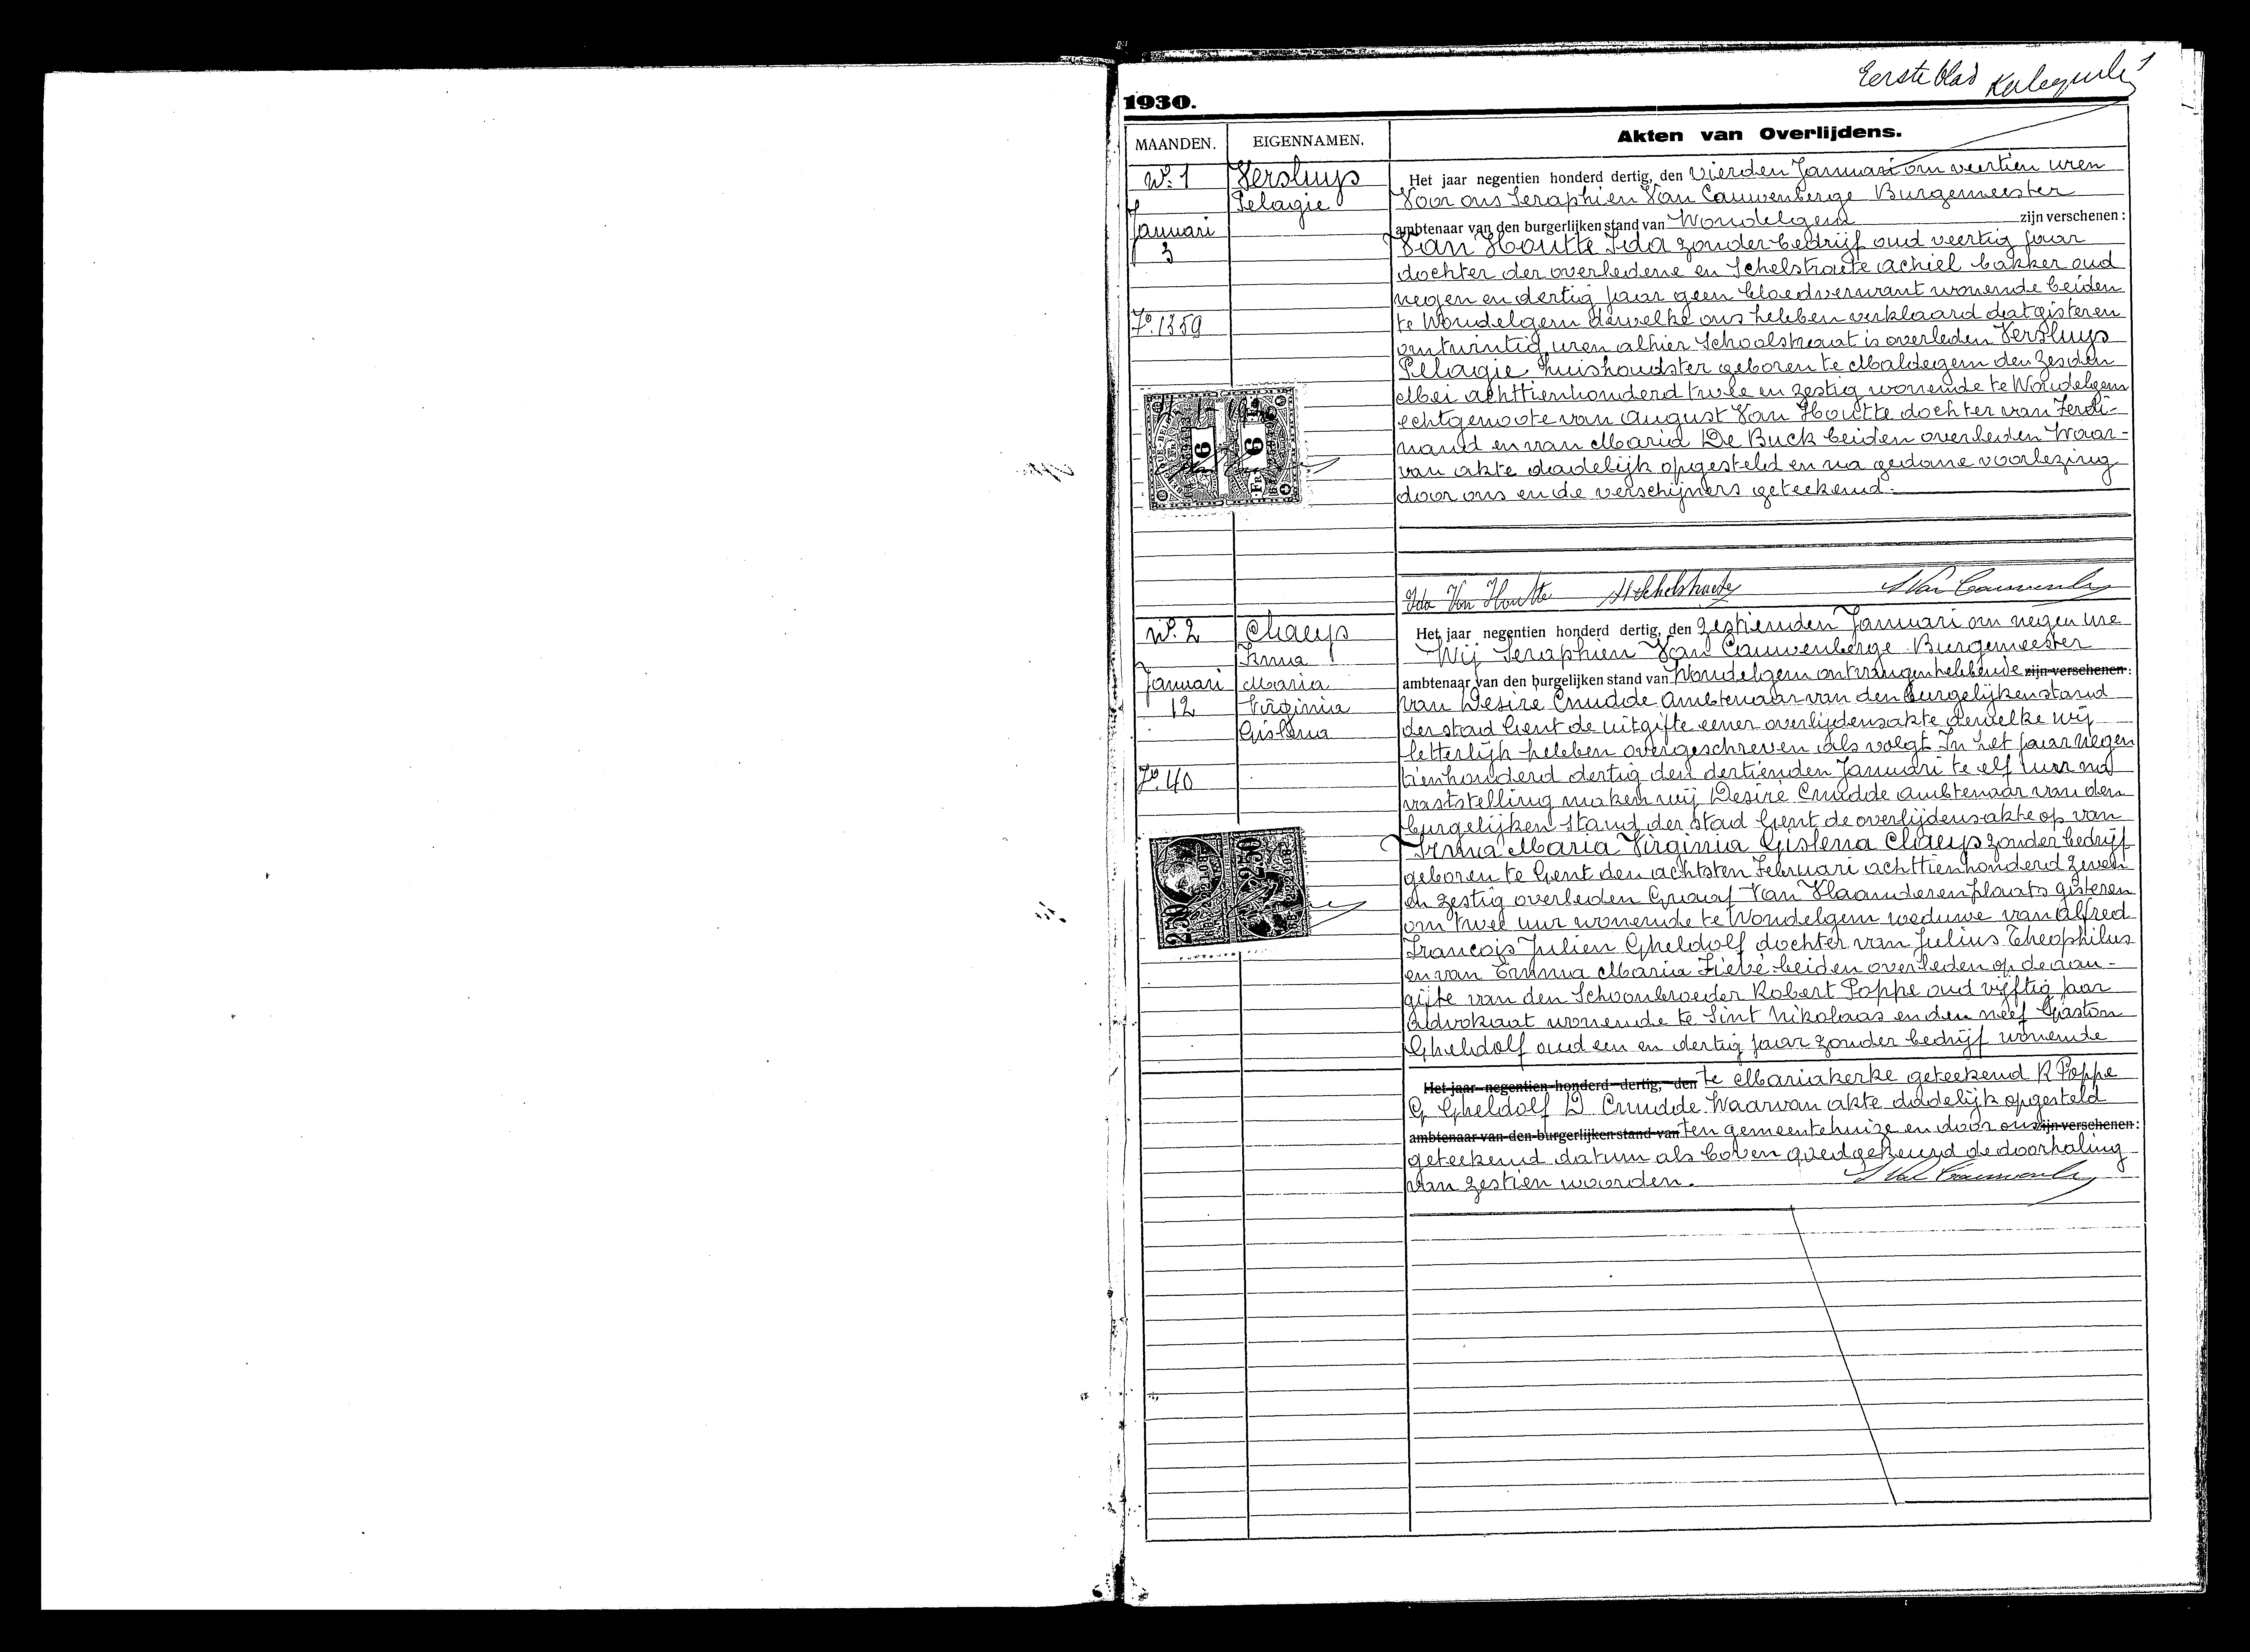 Eerste blad
1930.
MAANDEN. EIGENNAMEN. Akten van Overlijdens.
N° 1
Januari
3
F° 1359
Versluys
Pelagie
Het jaar negentien honderd dertig, den vierden Januari om veertien uren
Voor ons Seraphien Van Cauwenberge Burgemeester
ambtenaar van den burgerlijken stand van Wondelgem zijn verschenen:
Van Houtte Ida zonder bedrijf oud veertig jaar
dochter der overledene en Schelstraete Achiel bakker oud
negen en dertig jaar geen bloedverwant wonende beiden
te Wondelgem dewelke ons hebben verklaard dat gisteren
om twintig uren alhier Schoolstraat is overleden Versluys
Pelagie huishoudster geboren te Maldegem den zesden
Mei achttienhonderd twee en zestig wonende te Wondelgem
echtgenoote van August Van Houtte dochter van Ferdi-
nand en van Maria De Buck beiden overleden Waar-
van akte dadelijk opgesteld en na gedane voorlezing
door ons en de verschijners geteekend.
Ida Van Houtte ASchelstraete S Van Cauwenberge
N° 2
Januari
12
F° 40
Claeys
Irma
Maria
Virginia
Gislena
Het jaar negentien honderd dertig, den zestienden Januari om negen ure
Wij Seraphien Van Cauwenberge Burgemeester
ambtenaar van den burgelijken stand van Wondelgem ontvangen hebbende zijn verschenen:
van Desiré Cnudde ambtenaar van den burgelijken stand
der stad Gent de uitgifte eener overlijdensakte dewelke wij
letterlijk hebben overgeschreven als volgt In het jaar negen
tienhonderd dertig den dertienden Januari te elf uur na
vaststelling maken wij Desiré Cnudde ambtenaar van den
burgelijken stand der stad Gent de overlijdensakte op van
Irma Maria Virginia Gislena Claeys zonder bedrijf
geboren te Gent den achtsten Februari achttienhonderd zeven
en zestig overleden Graaf Van Vlaanderenplaats gisteren
om twee uur wonende te Wondelgem weduwe van Alfred
François Julien Gheldolf dochter van Julius Theophilus
en van Emma Maria Fiévé beiden overleden op de aan-
gifte van den Schoonbroeder Robert Poppe oud vijftig jaar
advokaat wonende te Sint Nikolaas en den neef Gaston
Gheldolf oud een en dertig jaar zonder bedrijf wonende
Het jaar negentien honderd dertig, den te Mariakerke geteekend R Poppe
G Gheldolf D Cnudde. Waarvan akte dadelijk opgesteld
ambtenaar van den burgerlijken stand van ten gemeentehuize en door ons zijn verschenen:
geteekend datum als boven goedgekeurd de doorhaling
van zestien woorden. S Van Cauwenberge